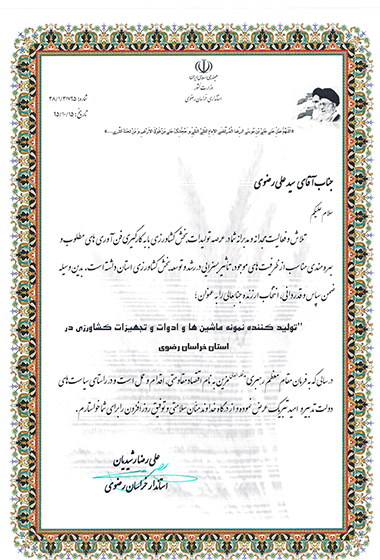 جمهوری اسلامی ایران
وزارت کشور
استانداری خراسان رضوی
شماره: ۲۸/۱/۲۷۲۹۵
تاریخ: ۹۵/۱۰/۱۵
جناب آقای سید علی رضوی
سلام علیکم
تلاش و فعالیت مجدانه و مدبرانه شما در عرصه تولیدات بخش کشاورزی با به کارگیری فن آوری های مطلوب و
بهره مندی مناسب از ظرفیت های موجود، تأثیر بسزایی در رشد و توسعه بخش کشاورزی استان داشته است. بدین وسیله
ضمن سپاس و قدردانی، انتخاب ارزنده جنابعالی را به عنوان:
"تولید کننده نمونه ماشین ها و ادوات و تجهیزات کشاورزی در
استان خراسان رضوی"
در سالی که به فرمان مقام معظم رهبری مزین به نام اقتصاد مقاومتی، اقدام و عمل است و در راستای سیاست های
دولت تدبیر و امید تبریک عرض نموده و از درگاه خداوند منان سلامتی و توفیق روزافزون را برای شما خواستارم.
علی رضا رشیدیان
استاندار خراسان رضوی